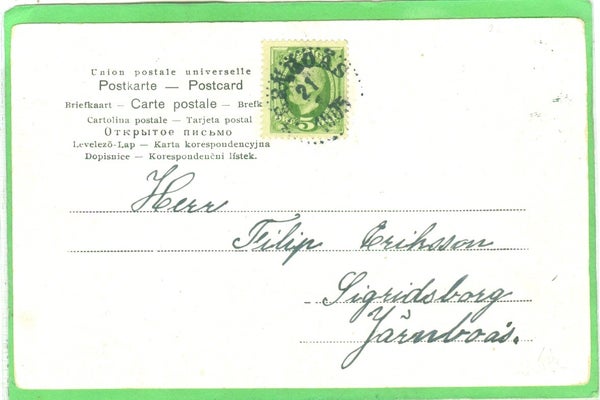 Union postale universelle
Postkarte — Postcard
Briefkaart — Carte postale — Brefk
Cartolina postale — Tarjeta postal
Открытое письмо
Levelező-Lap — Karta korespondencyjna
Dopisnice — Korespondenční lístek.
5
21
Herr
Filip Eriksson
Sigridsborg
Järnboås.